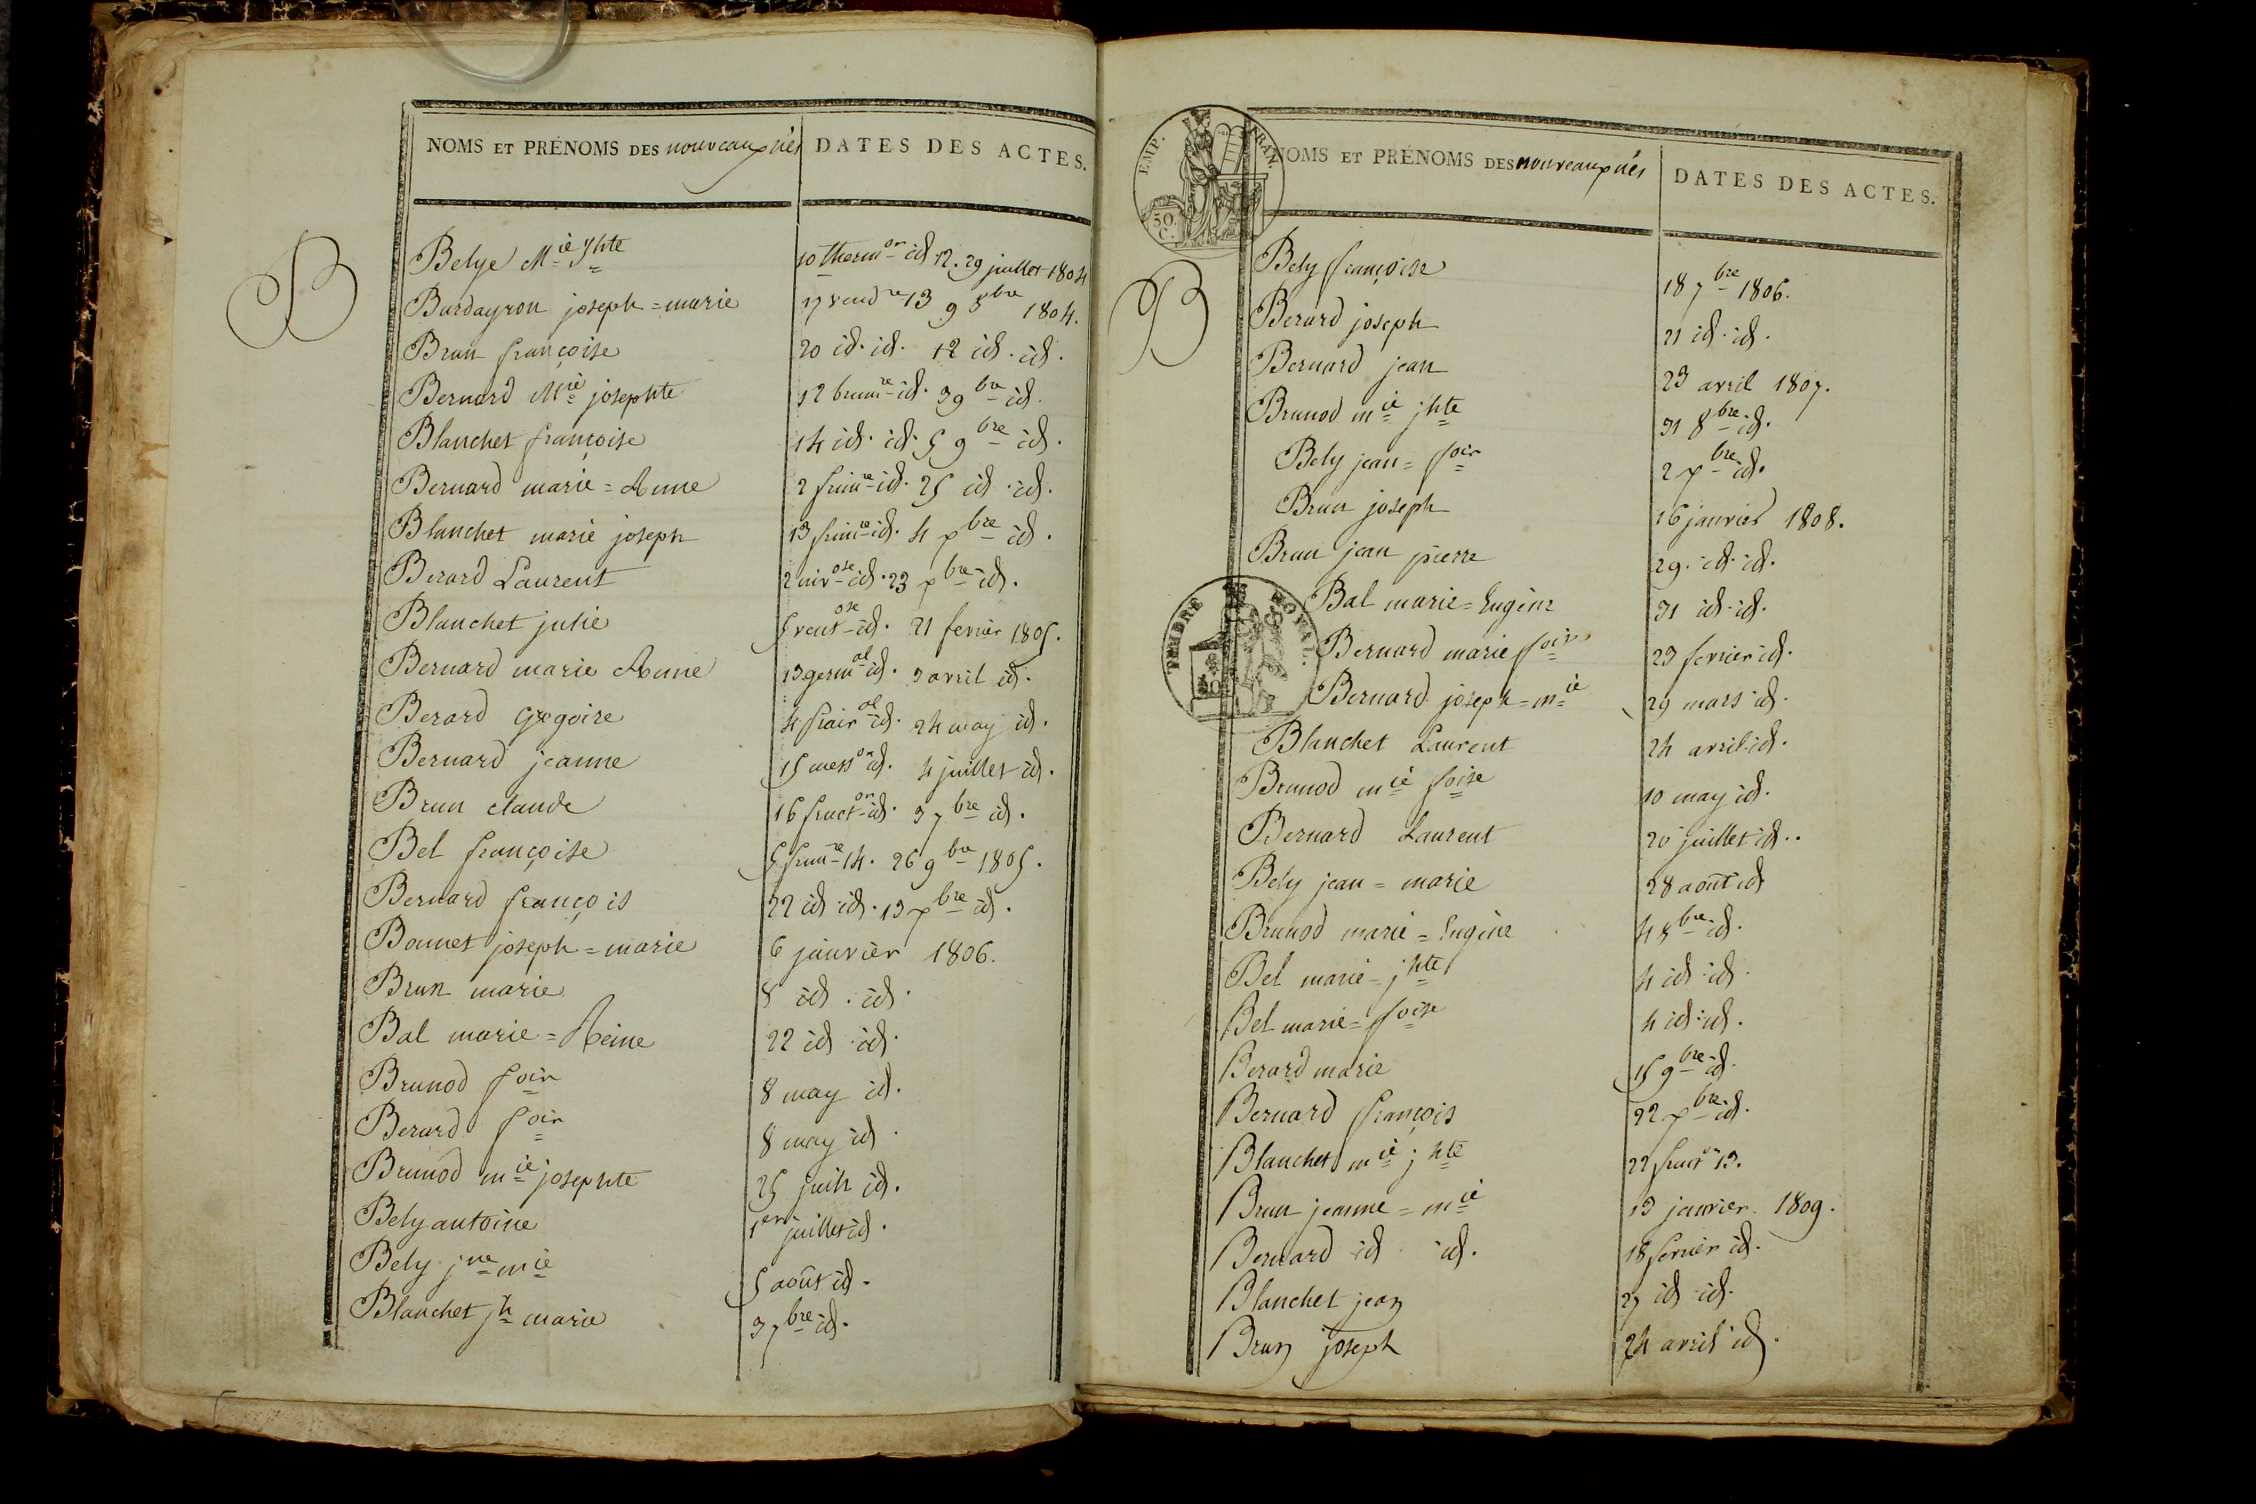 NOMS ET PRÉNOMS DES nouveaux nés DATES DES ACTES.
B
Belye Mie Jhte 10 thermor id 12. 29 juillet 1804
Bardayron joseph = marie 17 vendre 13 9 8bre 1804.
Brun françoise 20 id. id. 12 id. id.
Bernard Mie josephte 12 brumre id. 3 9bre id.
Blanchet françoise 14 id. id. 5 9bre id.
Bernard marie = Anne 2 frimre id. 25 id. id.
Blanchet marie joseph 13 frimre id. 4 xbre id.
Berard Laurent 2 nivose id. 23 xbre id.
Blanchet julie 5 ventose id. 21 fevrier 1805.
Bernard marie Anne 13 germal id. 3 avril id.
Berard Gregoire 4 prairal id. 24 may id.
Bernard jeanne 15 messor id. 4 juillet id.
Brun claude 16 fructor id. 3 7bre id.
Bel françoise 5 frimre 14. 26 9bre 1805.
Bernard françois 22 id id. 13 xbre id.
Bonnet joseph = marie 6 janvier 1806.
Brun marie 8 id. id.
Bal marie = Reine 22 id. id.
Brunod foir 8 may id.
Berard foir 8 may id.
Brunod mie josephte 25 juin id.
Bely antoine 1er juillet id.
Bely jne mie 5 août id.
Blanchet jh marie 3 7bre id.
EMP. FRAN.
50. C.
NOMS ET PRÉNOMS DES nouveaux nés DATES DES ACTES.
B
Bely françoise 18 7bre 1806.
Berard joseph 21 id. id.
Bernard jean 23 avril 1807.
Brunod mie jhte 31 8bre id.
Bely jean = foir 2 xbre id.
Brun joseph 16 janvier 1808.
Brun jean pierre 29. id. id.
TIMBRE ROYAL.
Bal marie = Eugène 31 id. id.
Bernard marie foir 23 fevrier id.
Bernard joseph = mie 29 mars id.
Blanchet Laurent 24 avril id.
Brunod mie foise 10 may id.
Bernard Laurent 20 juillet id..
Bely jean = marie 28 août id
Brunod marie = Eugène 4 8bre id.
Bel marie = jhte 4 id id.
Bel marie = foise 4 id. id.
Berard marie 15 9bre id.
Bernard françois 22 xbre id.
Blanchet mie jhte 22 fruct 13.
Brun jeanne = mie 13 janvier. 1809.
Bernard id id. 18 fevrier id.
Blanchet jean 27 id id.
Brun joseph 24 avril id.